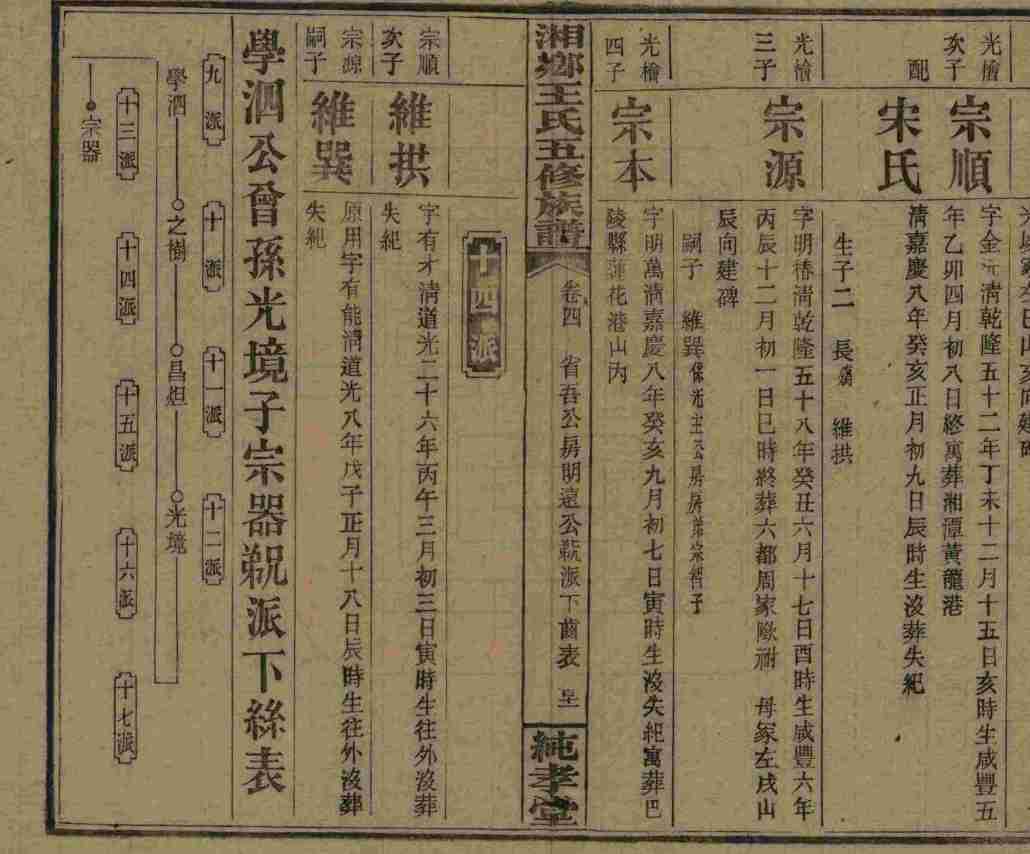 光㰍
次子
宗順
字金元清乾隆五十二年丁未十二月十五日亥時生咸豐五
年乙卯四月初八日終寓葬湘潭黃龍港
配
宋氏
清嘉慶八年癸亥正月初九日辰時生沒葬失紀
生子二　長殤　維拱
光檜
三子
宗源
字明椿清乾隆五十八年癸丑六月十七日酉時生咸豐六年
丙辰十二月初一日巳時終葬六都周家㘰祔　母冢左戌山
辰向建碑
嗣子　維巽係光主公房房弟宗智子
光檜
四子
宗本
字明萬清嘉慶八年癸亥九月初七日寅時生沒失紀寓葬巴
陵縣蓮花港山內
湘鄉王氏五修族譜
卷四　省吾公房明遠公覶派下齒表
純孝堂
十四派
宗順
次子
維拱
字有才清道光二十六年丙午三月初三日寅時生往外沒葬
失紀
宗源
嗣子
維巽
原用字有能清道光八年戊子正月十八日辰時生往外沒葬
失紀
學泗公曾孫光境子宗器覶派下絲表
九派　十派　十一派　十二派
學泗　之樹　昌炟　光境
十三派　十四派　十五派　十六派　十七派
宗器